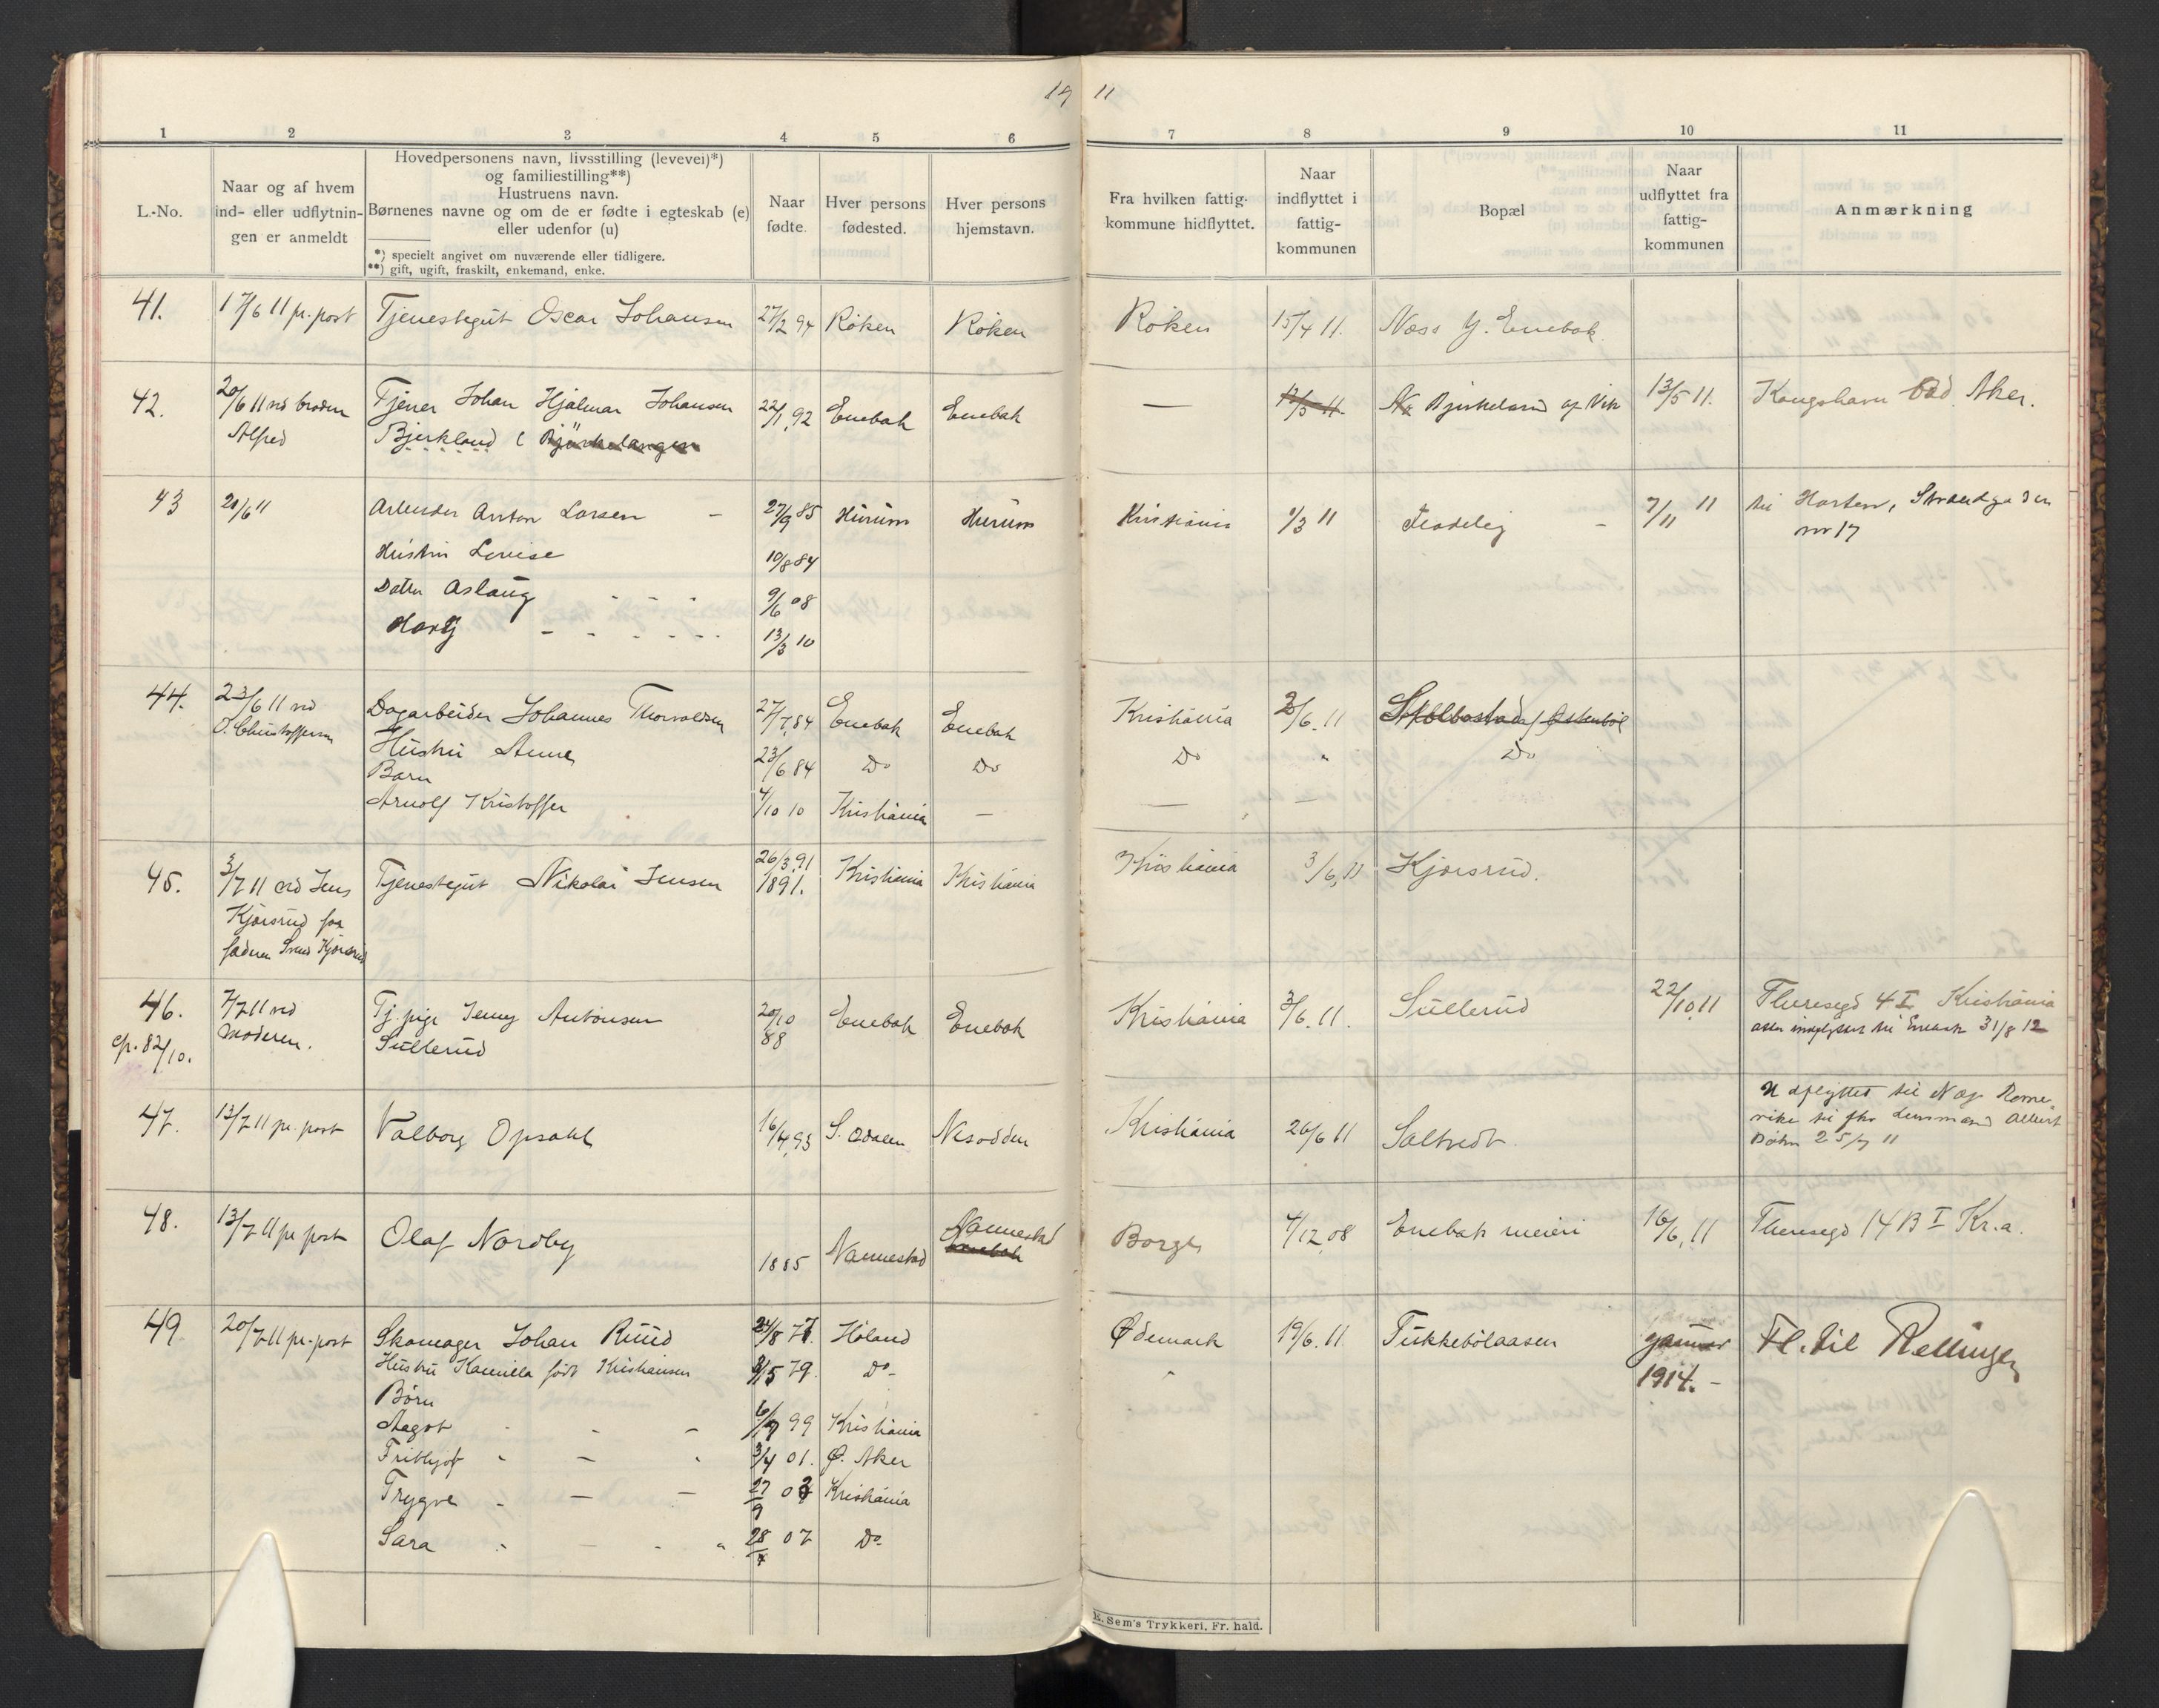 19 11
1 2 3 4 5 6 7 8 9 10 11
L.-No.
Naar og af hvem
ind- eller udflytnin-
gen er anmeldt
Hovedpersonens navn, livsstilling (levevei)*)
og familiestilling**)
Hustruens navn.
Børnenes navne og om de er fødte i egteskab (e)
eller udenfor (u)
*) specielt angivet om nuværende eller tidligere.
**) gift, ugift, fraskilt, enkemand, enke.
Naar
fødte.
Hver persons
fødested.
Hver persons
hjemstavn.
Fra hvilken fattig-
kommune hidflyttet.
Naar
indflyttet i
fattig-
kommunen
Bopæl
Naar
udflyttet fra
fattig-
kommunen
Anmærkning
41. 17/6 11 pr. post Tjenestegut Oscar Johansen 27/2 94 Röken Röken Röken 15/4 11. Næss Y. Enebak
42. 20/6 11 ved broderen Tjener Johan Hjalmar Johansen 22/1, 92 Enebak Enebak — 12/5 11. Bjerkelund af Vik 13/5 11. Kongshavn bad Aker.
Alfred Bjerkland
43 20/6 11 Arbeider Anton Larsen 27/9 85 Hurum Hurum Kristiania 1/3 11 7/11 11 til Horten, Strandgaden
nr 17
Hustru Lovise 10/8 84
Datter Aslaug 9/6 08
Harry 13/3 10
44. 23/6 11 ved Dagarbeider Johannes Thorvaldsen 27/7, 84 Enebak Enebak Kristiania 2/6. 11
O. Christoffersen Hustru Anne 23/6 84 Do Do Do " Do
Barn
Arnolf Kristoffer 4/10 10 Kristiania — — —
45. 3/7 11 ved Jens Tjenestegut Nikolai Jensen 26/3. 91 Kristiania Kristiania Kristiania 3/6, 11 Kjørsrud.
1891.
Kjørsrud for
faderen Svend Kjørsrud
46. 7/7 11 ved Tj. pige Jenny Antonsen 20/10 Enebak Enebak Kristiania 3/6. 11. Sullerud 22/10. 11 Theresegd 4 I Kristiania
88
cfr. 82/10. moderen. Sullerud atter indflyttet til Enebak 31/8 12
47. 13/7 11 pr. post Valborg Opsahl 16/4, 93 S. Odalen Nesodden Kristiania 26/6 11 Saltvedt. Udflyttet til N og Rome-
rike til fhv Lensmand Albert
Bøhn 25/7 11
48. 13/7 11 pr post Olaf Nordby 1885 Nannestad Nannestad Borge 4/12, 08 Enebak meieri 16/6, 11 Theresegd 14 B I Kr.a.
Enebak
49 20/7 11 pr. post Skomager Johan Ruud 24/8 77. Höland Ødemark 19/6. 11. Tukkebölaasen januar Fl. til Rellingen
1914. -
Hustru Kamilla födt Kristiansen 9/5 79. Do -
Börn
Aagot 6/9 99 Kristiania
Frithjof 3/4 01. Ø. Aker
Trygve 27/9 03 Kristiania
Sara 28/4 07 Do
E. Sem's Trykkeri, Fr. hald.